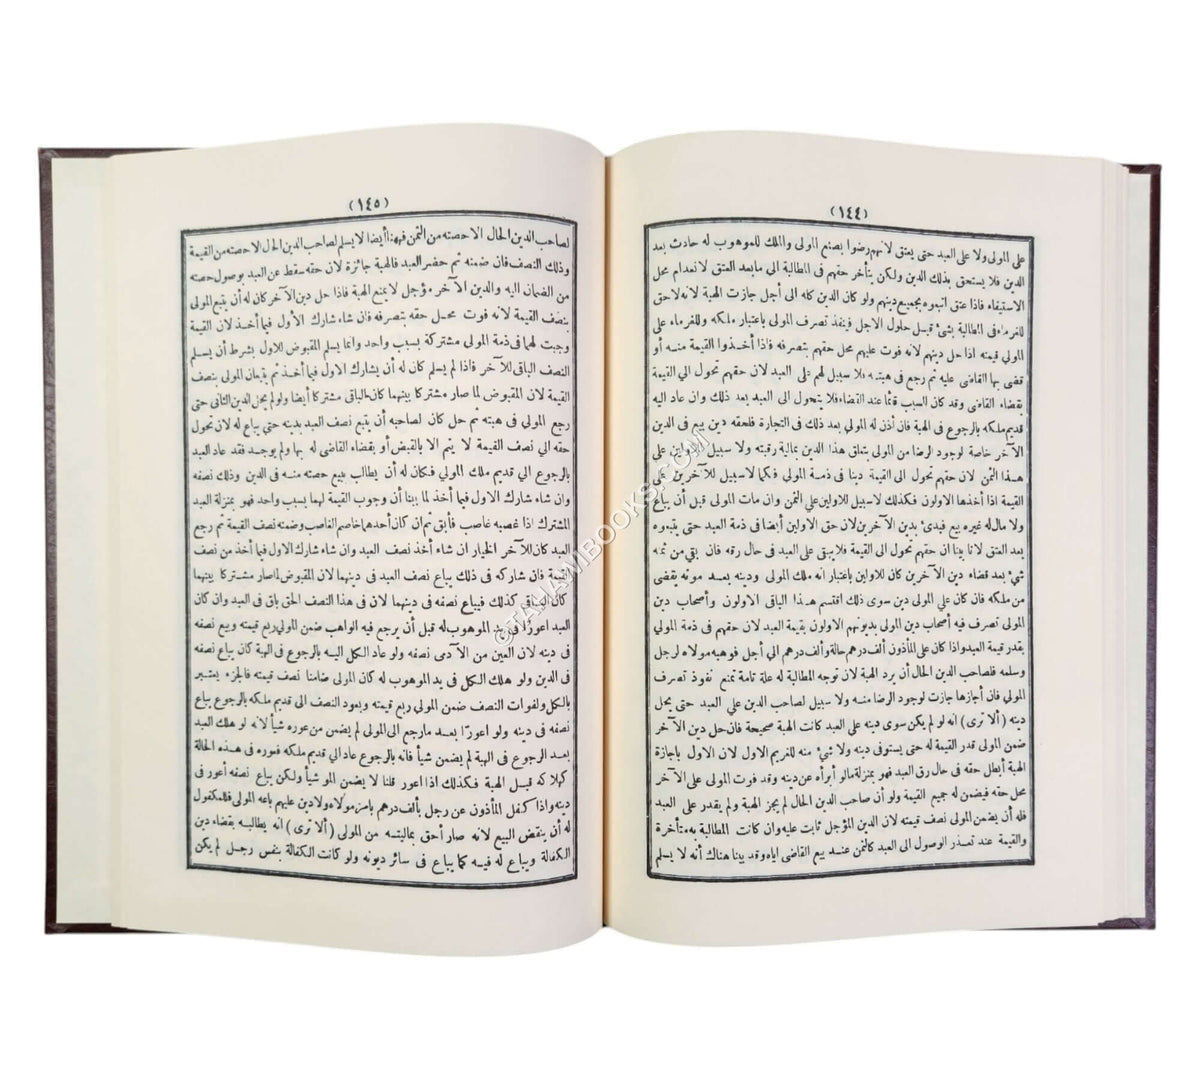 (١٤٤)
على المولى ولا على العبد حتى يعتق لانهم رضوا بصنع المولى والملك للموهوب له حادث بعد
الدين فلا يستحق بذلك الدين ولكن يتأخر حقهم فى المطالبة الى مابعد العتق لانعدام محل
الاستيفاء فاذا عتق اتبعوه بجميع دينهم ولو كان الدين كله الى أجل جازت الهبة لانه لاحق
للغرماء فى المطالبة بشئ قبل حلول الاجل فينفذ تصرف المولى باعتبار ملكه وللغرماء على
المولى قيمته اذا حل دينهم لانه فوت عليهم محل حقهم بتصرفه فاذا أخذوا القيمة منه أو
قضى بها القاضى عليه ثم رجع فى هبته فلا سبيل لهم على العبد لان حقهم تحول الى القيمة
بقضاء القاضى وقد كان السبب قائما عند القضاء فلا يتحول الى العبد بعد ذلك وان عاد اليه
قديم ملكه بالرجوع فى الهبة فان أذن له المولى بعد ذلك فى التجارة فلحقه دين بيع فى الدين
الآخر خاصة لوجود الرضا من المولى بتعلق هذا الدين بمالية رقبته ولا سبيل للاولين على
هذا الثمن لان حقهم تحول الى القيمة دينا فى ذمة المولى فكما لاسبيل للآخرين على
القيمة اذا أخذها الاولون فكذلك لاسبيل للاولين على الثمن وان مات المولى قبل أن يباع
ولا مال له غيره بيع فبدئ بدين الآخرين لان حق الاولين أيضا فى ذمة العبد حتى يتبعوه
بعد العتق لانا بينا ان حقهم تحول الى القيمة فلا يبقى على العبد فى حال رقه فان بقى من ثمنه
شئ بعد قضاء دين الآخرين كان للاولين باعتبار انه ملك المولى ودينه بعد موته يقضى
من ملكه فان كان على المولى دين سوى ذلك اقتسم هذا الباقى الاولون وأصحاب دين
المولى تصرف فيه أصحاب دين المولى بديونهم الاولون بقيمة العبد لان حقهم فى ذمة المولى
بقدر قيمة العبد واذا كان على المأذون ألف درهم حالة وألف درهم الى أجل فوهبه مولاه لرجل
وسلمه فلصاحب الدين الحال أن يرد الهبة لان توجه المطالبة له علة تامة تمنع نفوذ تصرف
المولى فان أجازها جازت لوجود الرضا منه ولا سبيل لصاحب الدين على العبد حتى يحل
دينه (ألا ترى) انه لو لم يكن سوى دينه على العبد كانت الهبة صحيحة فان حل دين الآخر
ضمن المولى قدر القيمة له حتى يستوفى دينه ولا شئ منه للغريم الاول لان الاول باجازة
الهبة أبطل حقه فى حال رق العبد فهو بمنزلة مالو أبرأه عن دينه وقد فوت المولى على الآخر
محل حقه فيضمن له جميع القيمة ولو أن صاحب الدين الحال لم يجز الهبة ولم يقدر على العبد
فله أن يضمن المولى نصف قيمته لان الدين المؤجل ثابت عليه وان كانت المطالبة به متأخرة
والقيمة عند تعذر الوصول الى العبد كالثمن عند بيع القاضى اياه وقد بينا هناك أنه لا يسلم
(١٤٥)
لصاحب الدين الحال الا حصته من الثمن فهنا أيضا لا يسلم لصاحب الدين الحال الا حصته من القيمة
وذلك النصف فان ضمنه ثم حضر العبد فالهبة جائزة لان حقه سقط عن العبد بوصول حصته
من الضمان اليه والدين الآخر مؤجل لا يمنع الهبة فاذا حل دين الآخر كان له أن يتبع المولى
بنصف القيمة لانه فوت محل حقه بتصرفه فان شاء شارك الأول فيما أخذ لان القيمة
وجبت لهما فى ذمة المولى مشتركة بسبب واحد وانما يسلم المقبوض للاول بشرط أن يسلم
النصف الباقى للآخر فاذا لم يسلم كان له أن يشارك الاول فيما أخذ ثم يتبعان المولى بنصف
القيمة لان المقبوض لما صار مشتركا بينهما كان الباقى مشتركا أيضا ولو لم يحل الدين الثانى حتى
رجع المولى فى هبته ثم حل كان لصاحبه أن يتبع نصف العبد بدينه حتى يباع له لان تحول
حقه الى نصف القيمة لا يتم الا بالقبض أو بقضاء القاضى له بها ولم يوجد فقد عاد العبد
بالرجوع الى قديم ملك المولى فكان له أن يطالب ببيع حصته منه فى الدين وذلك نصفه
وان شاء شارك الاول فيما أخذ لما بينا أن وجوب القيمة لهما بسبب واحد فهو بمنزلة العبد
المشترك اذا غصبه غاصب فأبق ثم ان كان أحدهما خاصم الغاصب وضمنه نصف القيمة ثم رجع
العبد كان للآخر الخيار ان شاء أخذ نصف العبد وان شاء شارك الاول فيما أخذ من نصف
القيمة فان شاركه فى ذلك يباع نصف العبد فى دينهما لان المقبوض لما صار مشتركا بينهما
كان الباقى كذلك فيباع نصفه فى دينهما لان فى هذا النصف الحق باق فى العبد وان كان
العبد اعور فى يد الموهوب له قبل أن يرجع فيه الواهب ضمن المولى ربع قيمته وبيع نصفه
فى دينه لان العين من الآدمى نصفه ولو عاد الكل اليه بالرجوع فى الهبة كان يباع نصفه
فى الدين ولو هلك الكل فى يد الموهوب له كان المولى ضامنا نصف قيمته فالجزء يعتبر
بالكل ولفوات النصف ضمن المولى ربع قيمته وبعود النصف الى قديم ملكه بالرجوع يباع
نصفه فى دينه ولو اعور بعد مارجع الى المولى لم يضمن من عوره شيأ لانه لو هلك العبد
بعد الرجوع فى الهبة لم يضمن شيأ فانه بالرجوع عاد الى قديم ملكه فعوره فى هذه الحالة
كهلاكه قبل الهبة فكذلك اذا اعور قلنا لا يضمن المولى شيأ ولكن يباع نصفه أعور فى
دينه واذا كفل المأذون عن رجل بألف درهم بامر مولاه ولا دين عليه ثم باعه المولى فللمكفول
له أن ينقض البيع لانه صار أحق بماليته من المولى (ألا ترى) انه يطالبه بقضاء دين
الكفالة ويباع له فيه كما يباع فى سائر ديونه ولو كانت الكفالة بنفس رجل لم يكن
©TAJAMBOOKS.COM